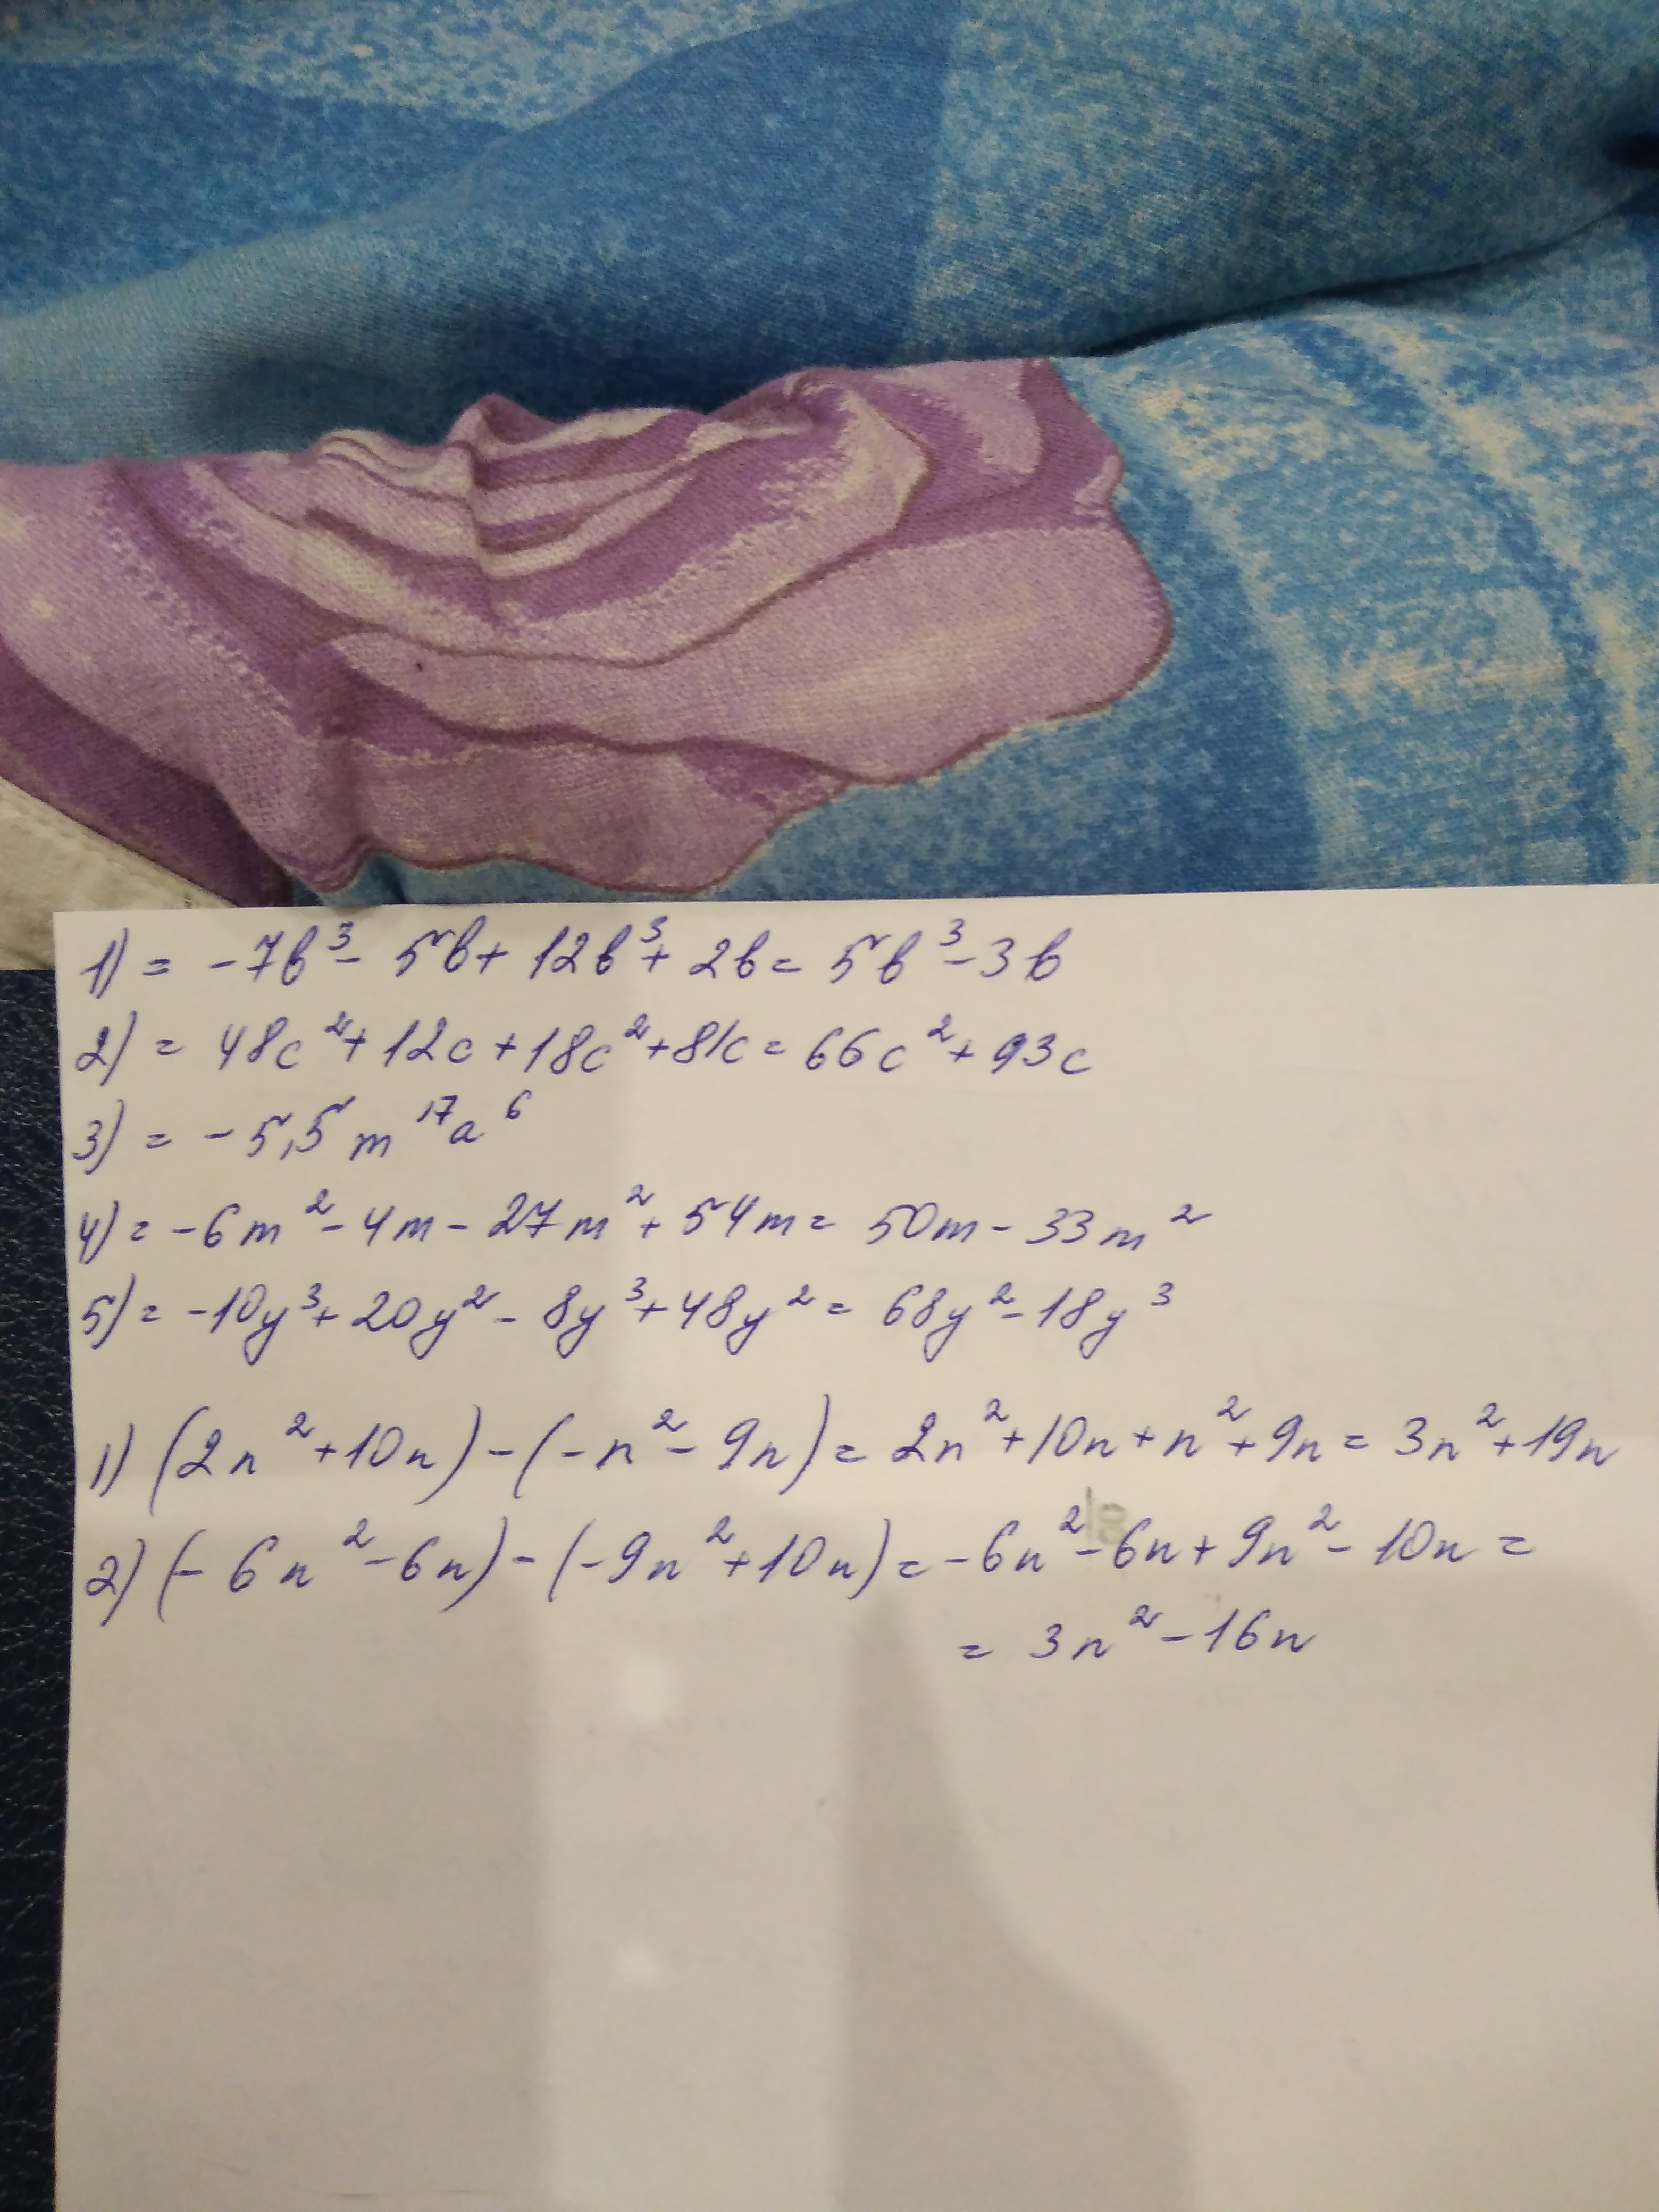 1) = -7b³ - 5b + 12b³ + 2b = 5b³ - 3b
2) = 48c² + 12c + 18c² + 81c = 66c² + 93c
3) = -5,5 m¹⁷a⁶
4) = -6m² - 4m - 27m² + 54m = 50m - 33m²
5) = -10y³ + 20y² - 8y³ + 48y² = 68y² - 18y³
1) (2n² + 10n) - (-n² - 9n) = 2n² + 10n + n² + 9n = 3n² + 19n
2) (-6n² - 6n) - (-9n² + 10n) = -6n² - 6n + 9n² - 10n =
= 3n² - 16n